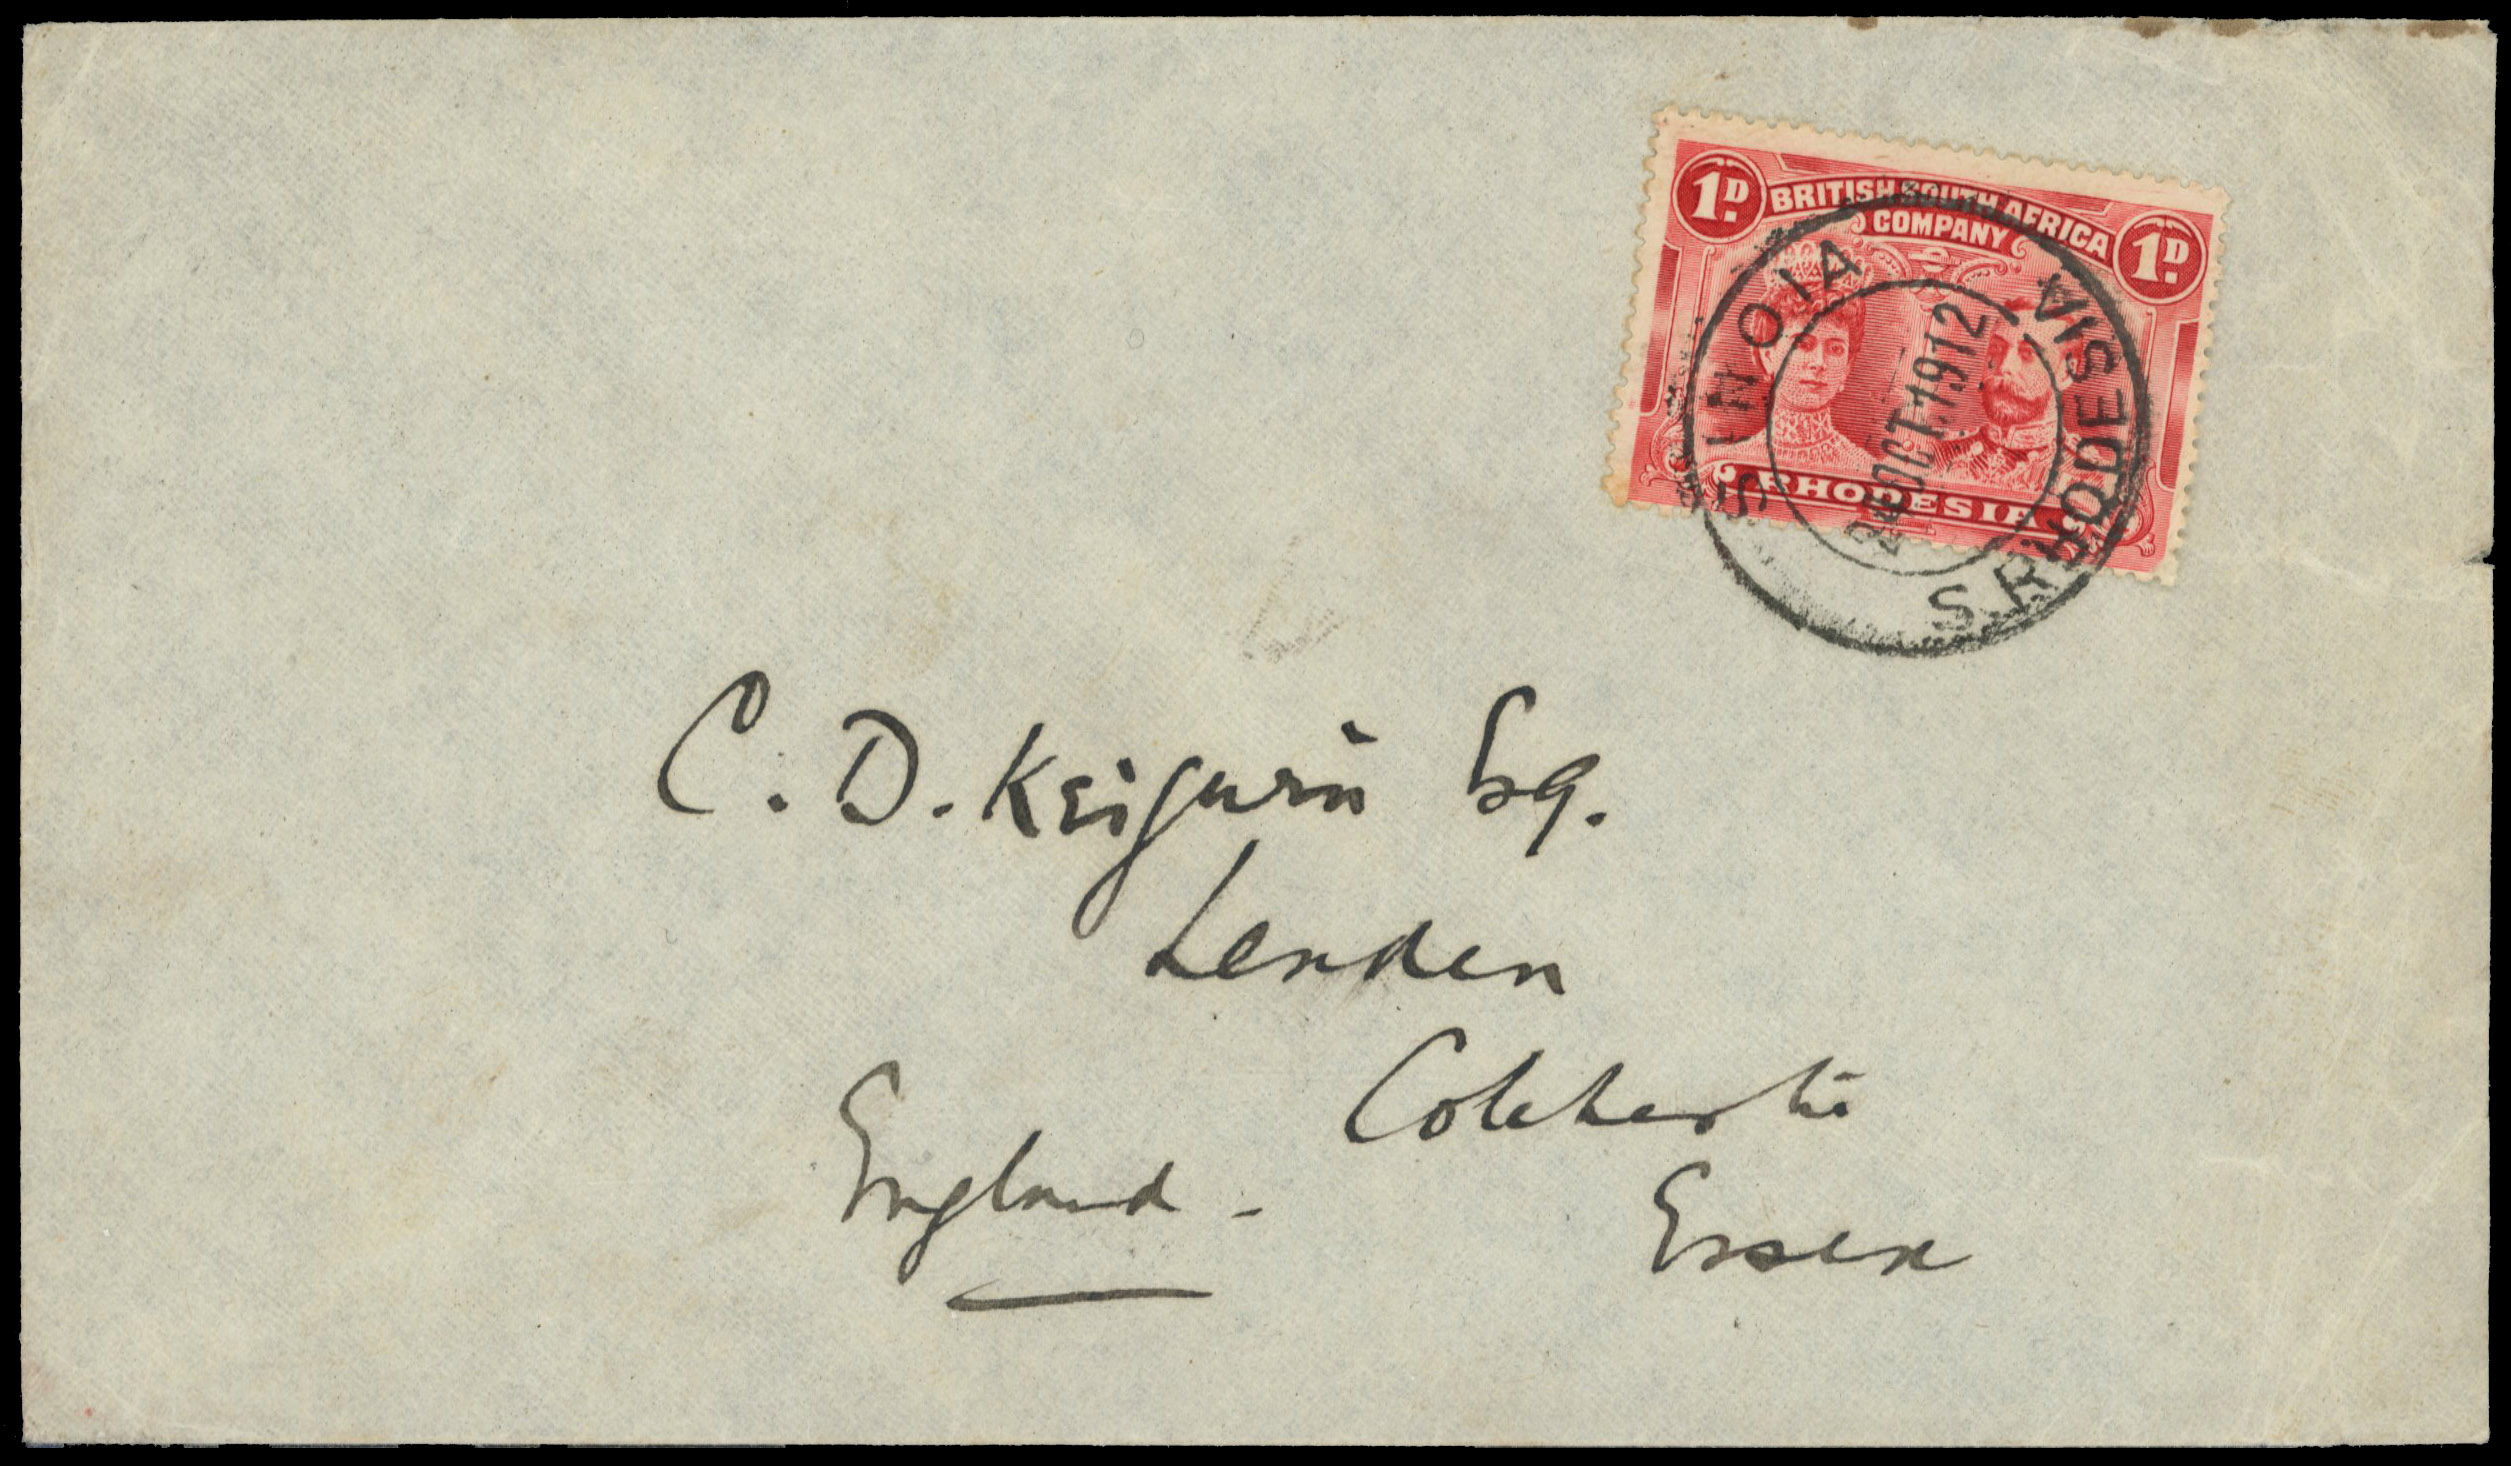 1D. BRITISH SOUTH AFRICA 1D.
COMPANY
RHODESIA
SINOIA
OCT.1912
S.RHODESIA
C. D. Esq.
Lenden
Colchester
England -
Essex